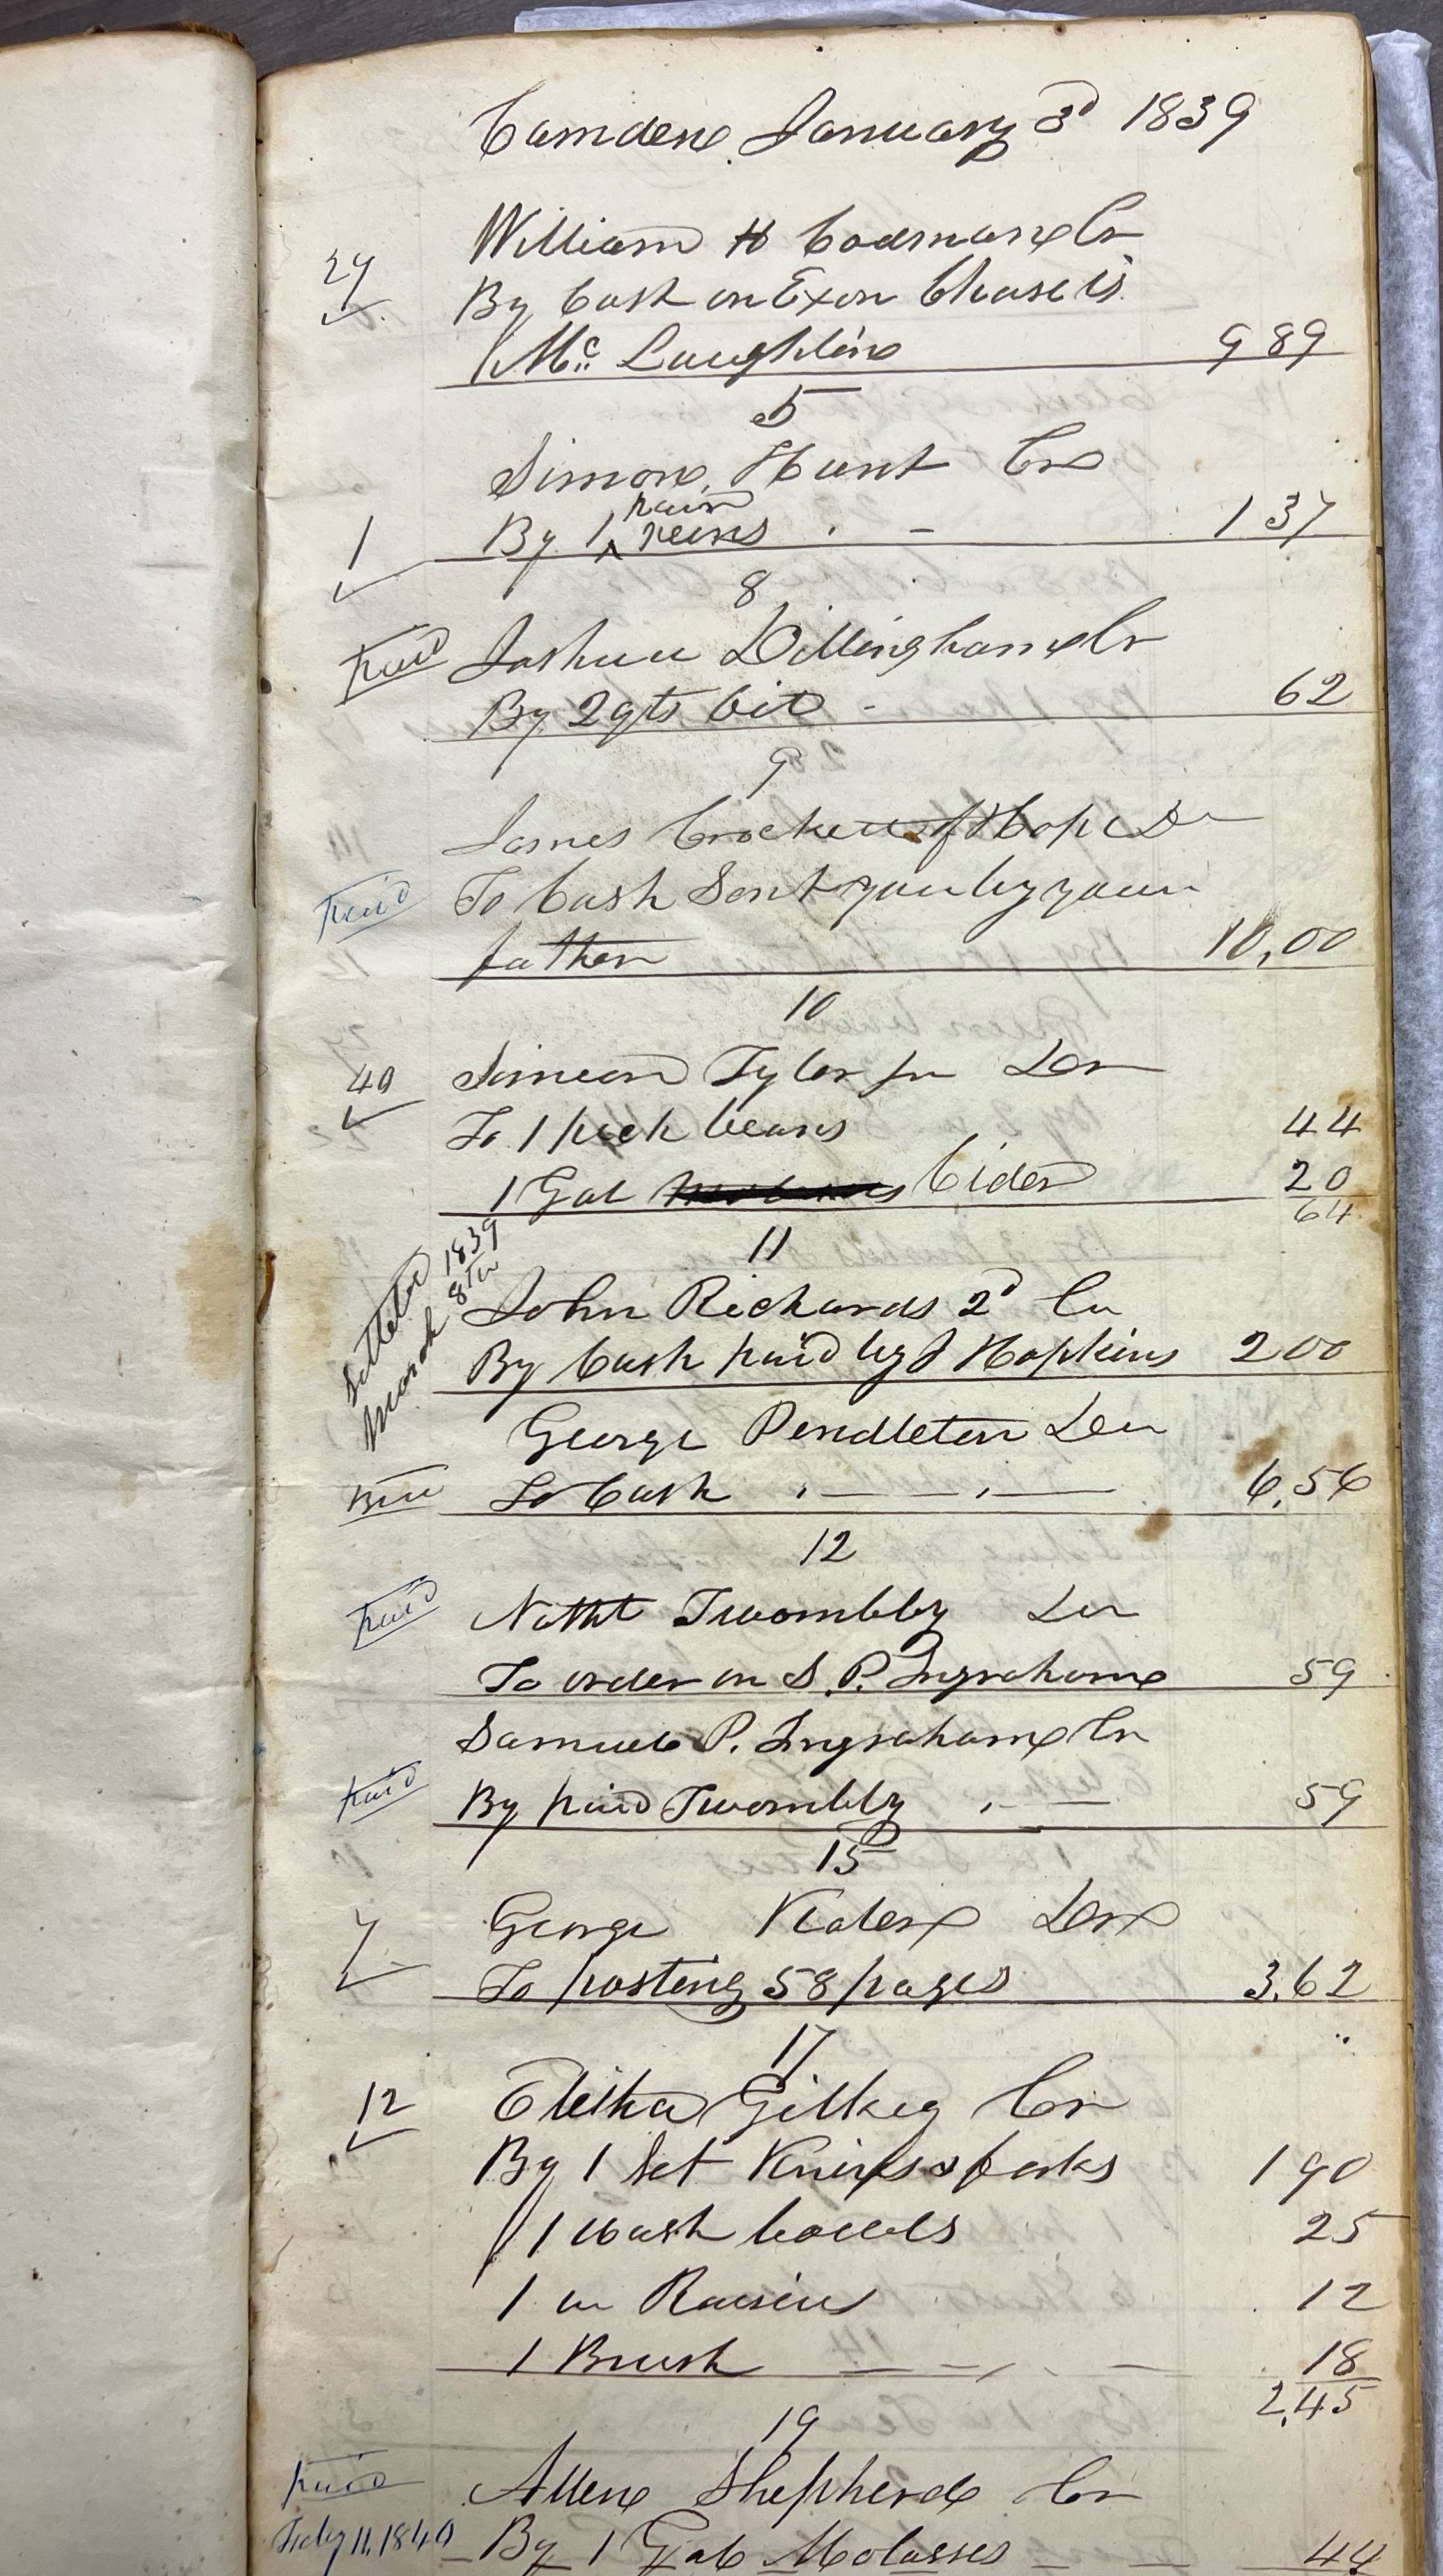 Camden January 3d 1839
William H Codman Cr
24
By Cash on Exon Chase vs
Mc Laughlin 9 89
5
Simon Hunt Cr
pair
1 By 1 ^ reins 1 37
8
Paid Joshua Dillingham Cr
By 2 qts 62
9
James Crockett of Hope Dr
Paid To Cash Sent you by your
father 10,00
10
40 Simeon Tyler jr Dr
To 1 peck beans 44
1 Gal Cider 20
64
11
Settled 1839
March 8th
John Richards 2d Cr
By Cash paid by J Hopkins 200
George Pendleton Dr
To Cash 6,56
12
Paid Nathl Twombly Dr
To order on S. P. Ingraham 59
Samuel P. Ingraham Cr
Paid By paid Twombly 59
15
George Dr
7 To posting 58 pages 3,62
17
12 Elisha Gilkey Cr
By 1 Set Knives & forks 1 90
1 wash bowls 25
1 lb Raisins 12
1 Brush 18
2,45
19
Paid Allen Shepherd Cr
July 11, 1840 By 1 Gal Molasses 44